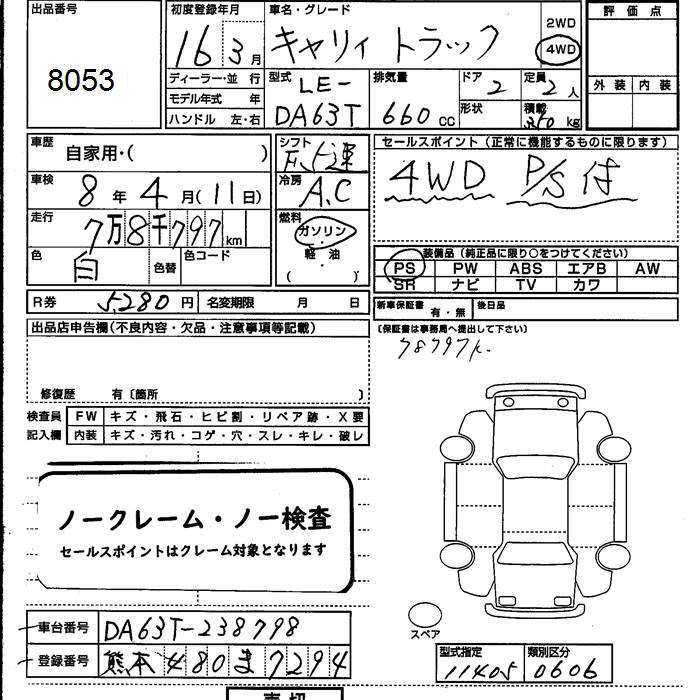 出品番号
8053
初度登録年月
16 3月
車名・グレード
キャリィ トラック
2WD
4WD
評価点
外装 内装
ディーラー・並 行
モデル年式 年
ハンドル 左・右
型式
LE-
DA63T
排気量
660 cc
ドア
2
形状
定員
2人
積載
350 kg
車歴
自家用・( )
車検
8年 4月(11日)
走行
7万8千797km
色
白
色替
色コード
シフト
F 5速
冷房
A.C
燃料
ガソリン
軽油
( )
セールスポイント(正常に機能するものに限ります)
4WD P/S付
装備品(純正品に限り○をつけてください)
PS PW ABS エアB AW
SR ナビ TV カワ
R券 5,280円 名変期限 月 日
新車保証書 有・無 後日品
(保証書は事務局へ提出して下さい)
78797k.
出品店申告欄(不良内容・欠品・注意事項等記載)
修復歴 有〔箇所 〕
検査員記入欄
FW キズ・飛石・ヒビ割・リペア跡・X要
内装 キズ・汚れ・コゲ・穴・スレ・キレ・破レ
ノークレーム・ノー検査
セールスポイントはクレーム対象となります
スペア
車台番号 DA63T-238798
登録番号 熊本480ま7294
型式指定 類別区分
11405 0606
売切